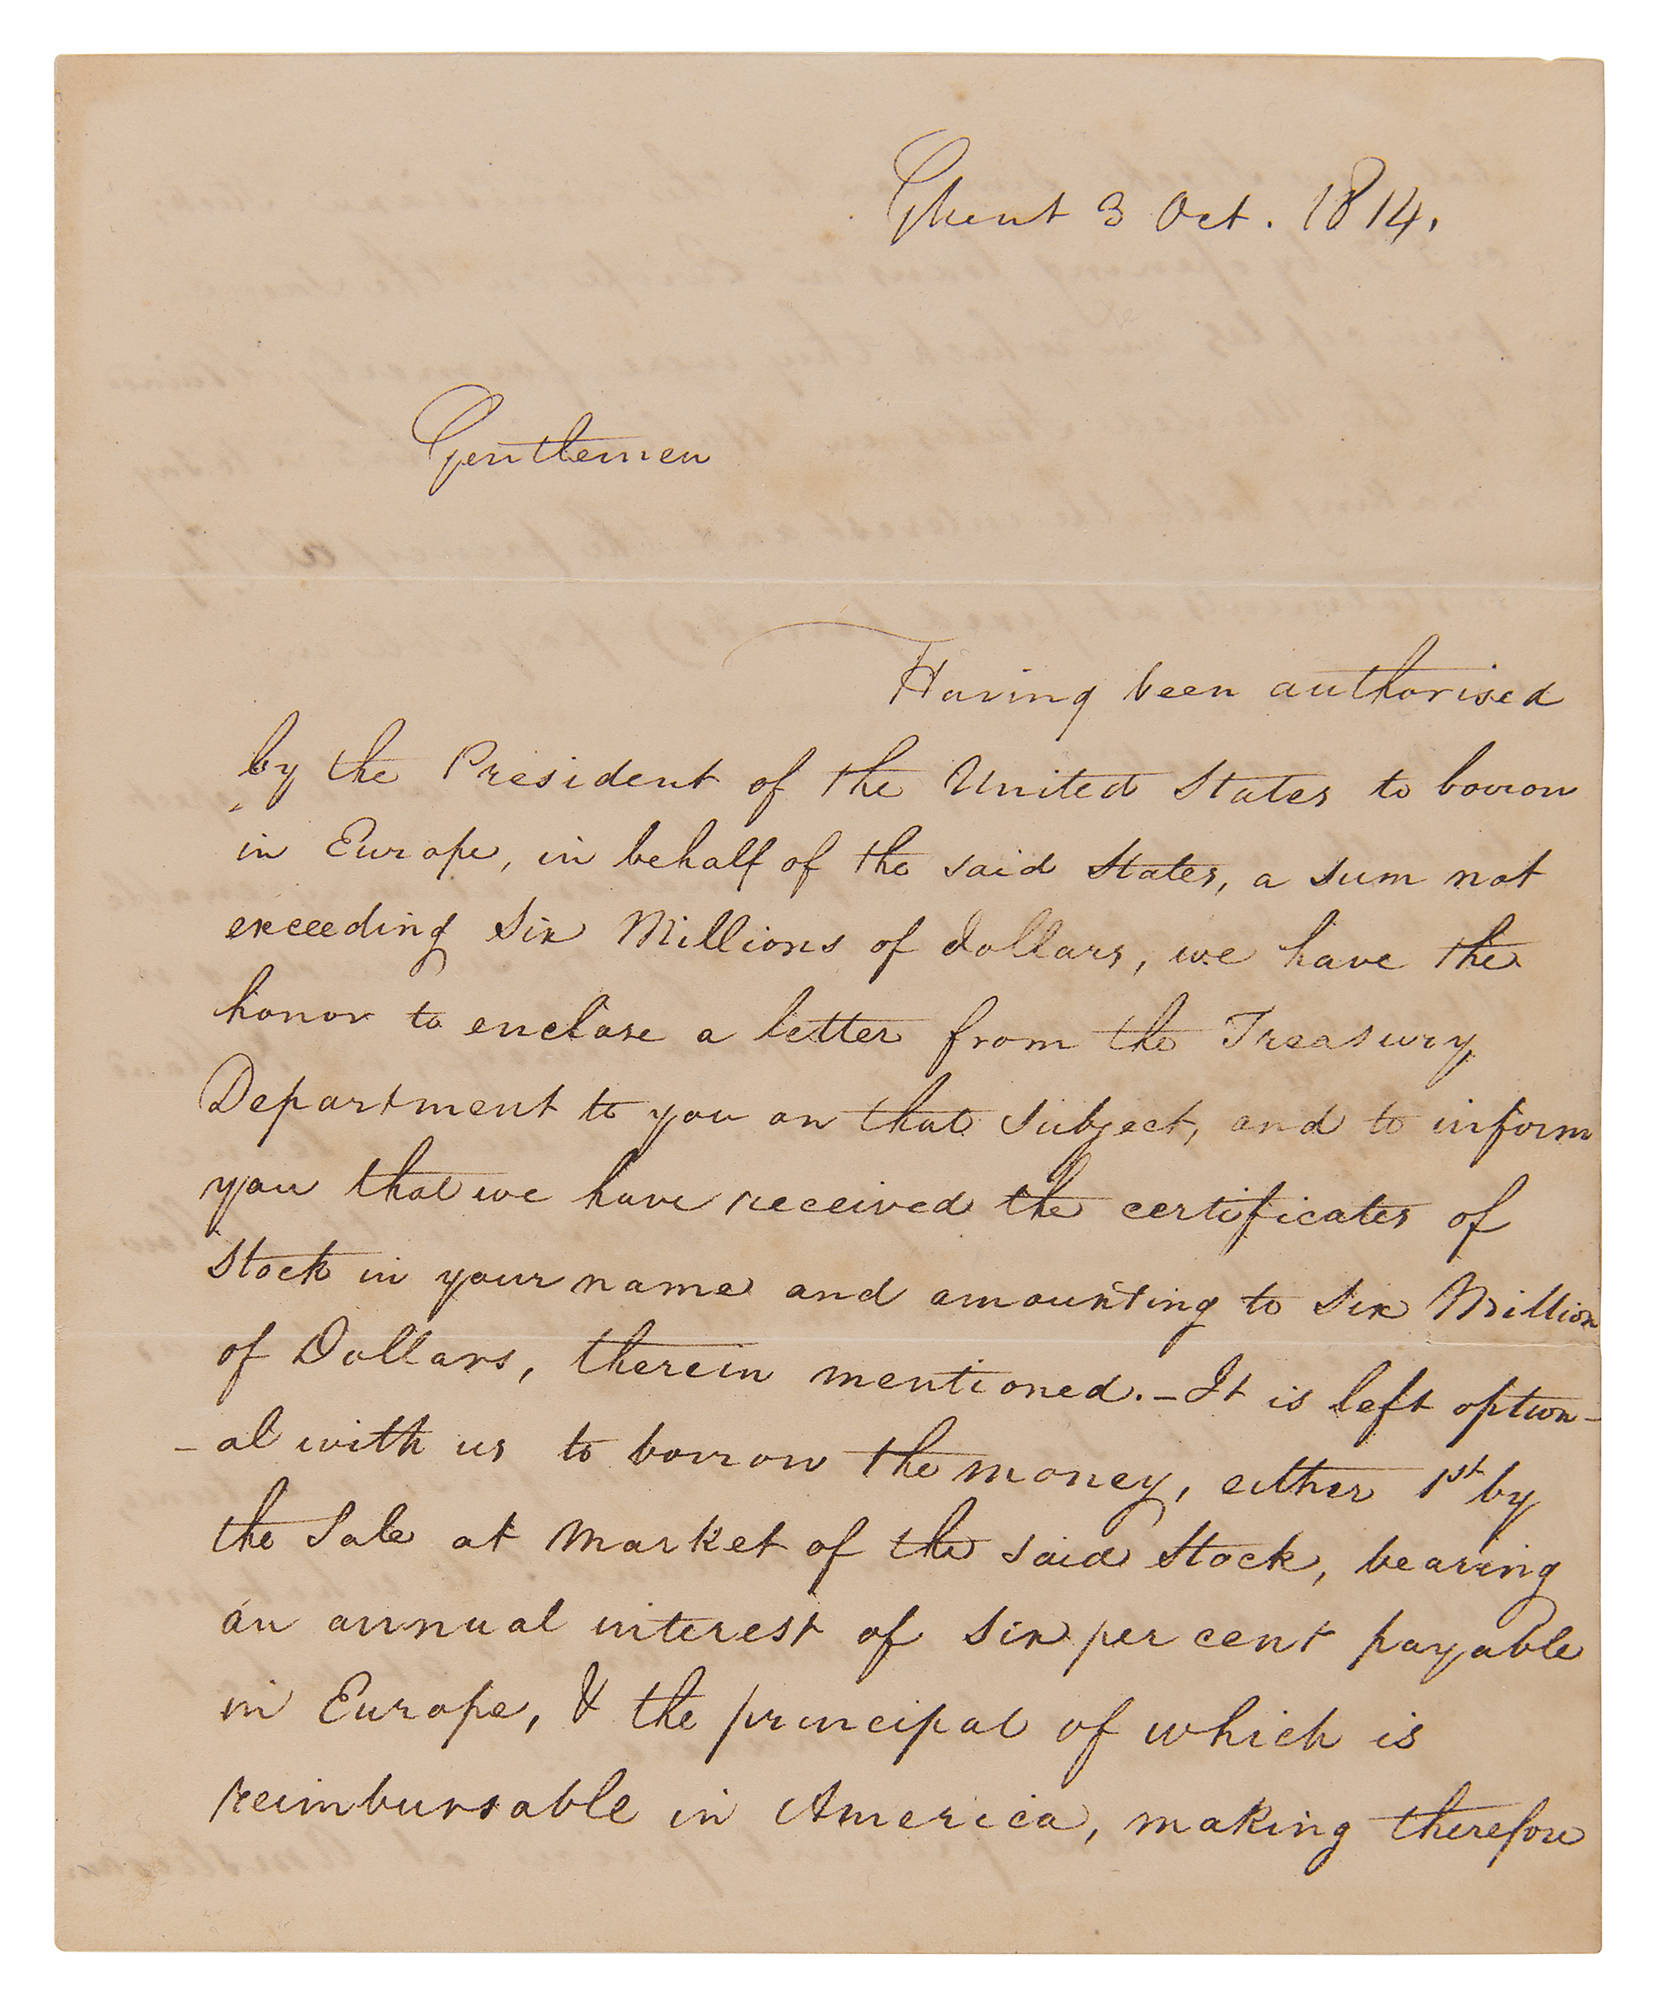 Ghent 3 Oct. 1814.
Gentlemen
Having been authorised
by the President of the United States to borrow
in Europe, in behalf of the said States, a sum not
exceeding Six Millions of dollars, we have the
honor to enclose a letter from the Treasury
Department to you on that subject, and to inform
you that we have received the certificates of
Stock in your name and amounting to Six Million
of Dollars, therein mentioned.—It is left option-
-al with us to borrow the money, either 1st by
the Sale at market of the said Stock, bearing
an annual interest of six per cent payable
in Europe, & the principal of which is
reimbursable in America, making therefore